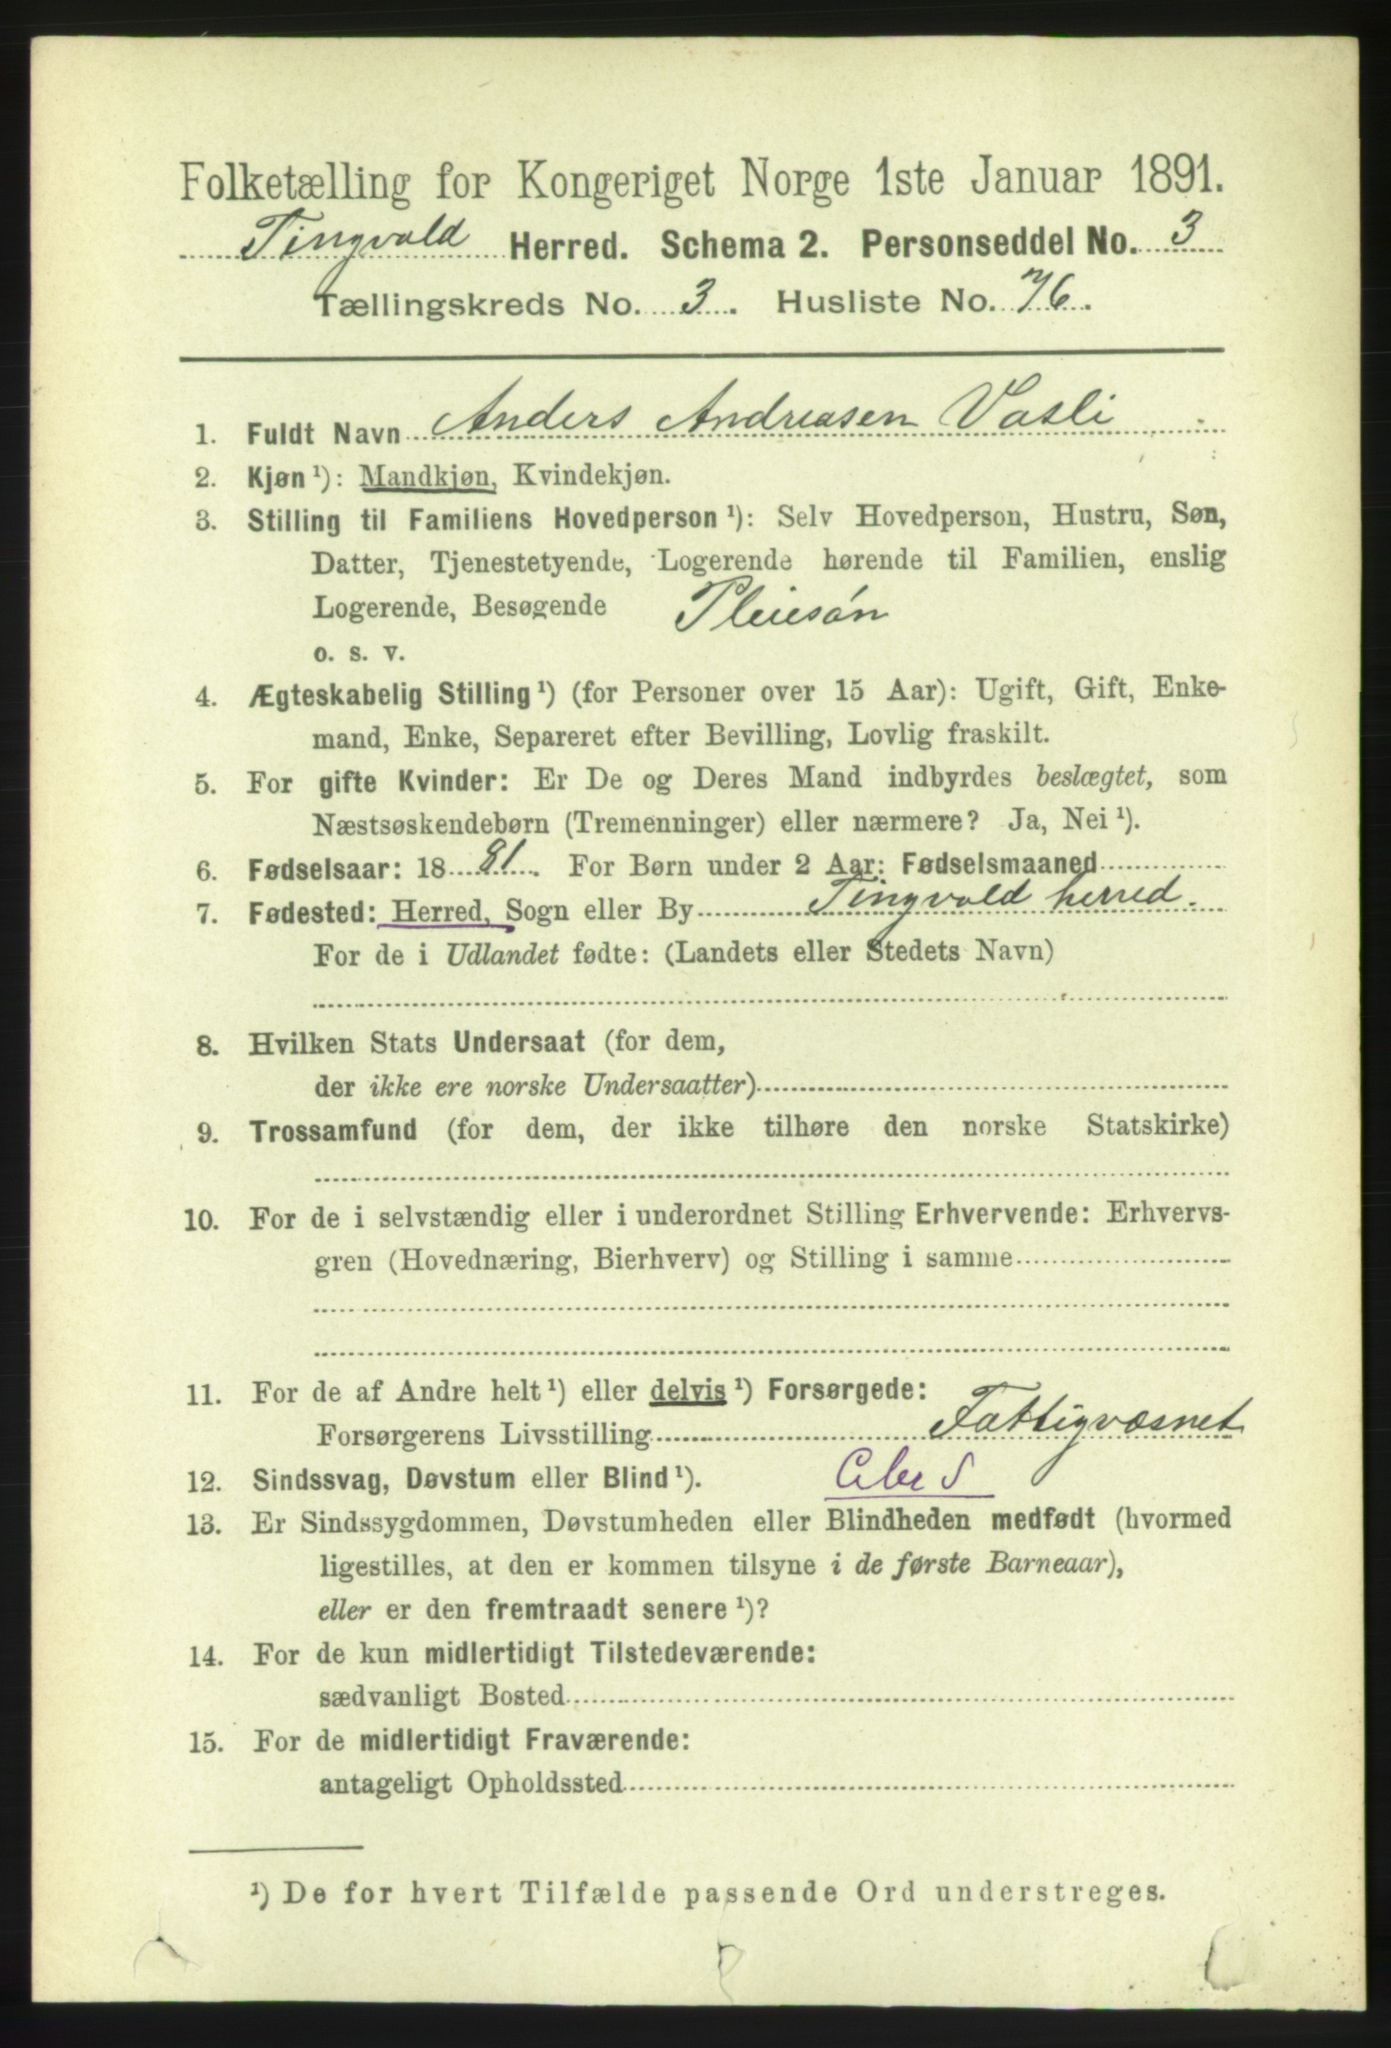 Folketælling for Kongeriget Norge 1ste Januar 1891.
Tingvold Herred. Schema 2. Personseddel No. 3
Tællingskreds No. 3. Husliste No. 76.
1. Fuldt Navn Anders Andreasen Vasli
2. Kjøn ¹): Mandkjøn, Kvindekjøn.
3. Stilling til Familiens Hovedperson ¹): Selv Hovedperson, Hustru, Søn,
Datter, Tjenestetyende, Logerende hørende til Familien, enslig
Logerende, Besøgende Pleiesøn
o. s. v.
4. Ægteskabelig Stilling ¹) (for Personer over 15 Aar): Ugift, Gift, Enke-
mand, Enke, Separeret efter Bevilling, Lovlig fraskilt.
5. For gifte Kvinder: Er De og Deres Mand indbyrdes beslægtet, som
Næstsøskendebørn (Tremenninger) eller nærmere? Ja, Nei ¹).
6. Fødselsaar: 1881. For Børn under 2 Aar: Fødselsmaaned
7. Fødested: Herred, Sogn eller By Tingvold herred.
For de i Udlandet fødte: (Landets eller Stedets Navn)
8. Hvilken Stats Undersaat (for dem,
der ikke ere norske Undersaatter)
9. Trossamfund (for dem, der ikke tilhøre den norske Statskirke)
10. For de i selvstændig eller i underordnet Stilling Erhvervende: Erhvervs-
gren (Hovednæring, Bierhverv) og Stilling i samme
11. For de af Andre helt ¹) eller delvis ¹) Forsørgede:
Forsørgerens Livsstilling Fattigvæsnet
12. Sindssvag, Døvstum eller Blind ¹).
13. Er Sindssygdommen, Døvstumheden eller Blindheden medfødt (hvormed
ligestilles, at den er kommen tilsyne i de første Barneaar),
eller er den fremtraadt senere ¹)?
14. For de kun midlertidigt Tilstedeværende:
sædvanligt Bosted
15. For de midlertidigt Fraværende:
antageligt Opholdssted
¹) De for hvert Tilfælde passende Ord understreges.